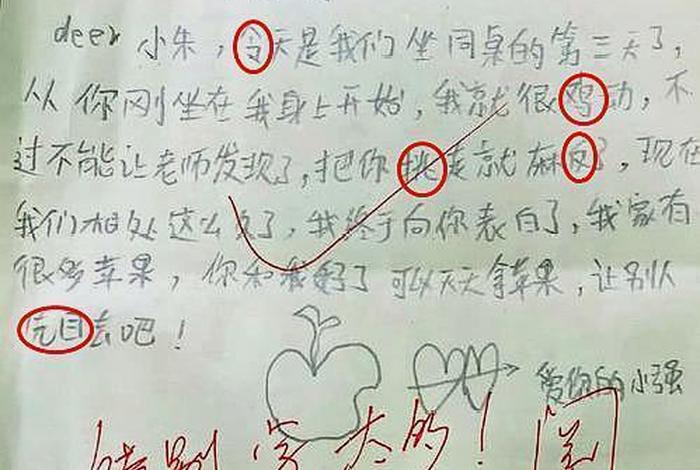 deer 小朱，令天是我们坐同桌的第三天了，
从你刚坐在我身上开始，我就很鸡动，不
过不能让老师发现了，把你挑走就麻反了，现在
我们相处这么久了，我终于向你表白了，我家有
很多苹果，你和我好了可以天天拿苹果，让别人
去吧！
爱你的小强